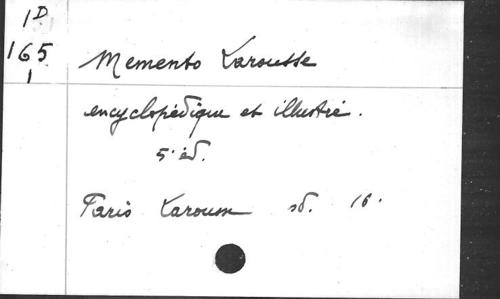 1D
165
1
Memento Larousse
encyclopédique et illustré.
5. éd.
Paris Larousse sd. 16.